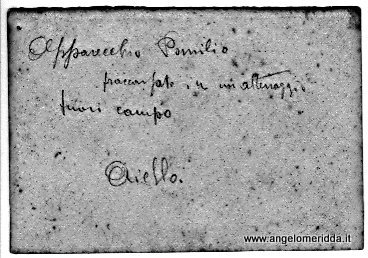 Apparecchio Pomilio
fracassato in un atterraggio
fuori campo
Aiello.
www.angelomeridda.it